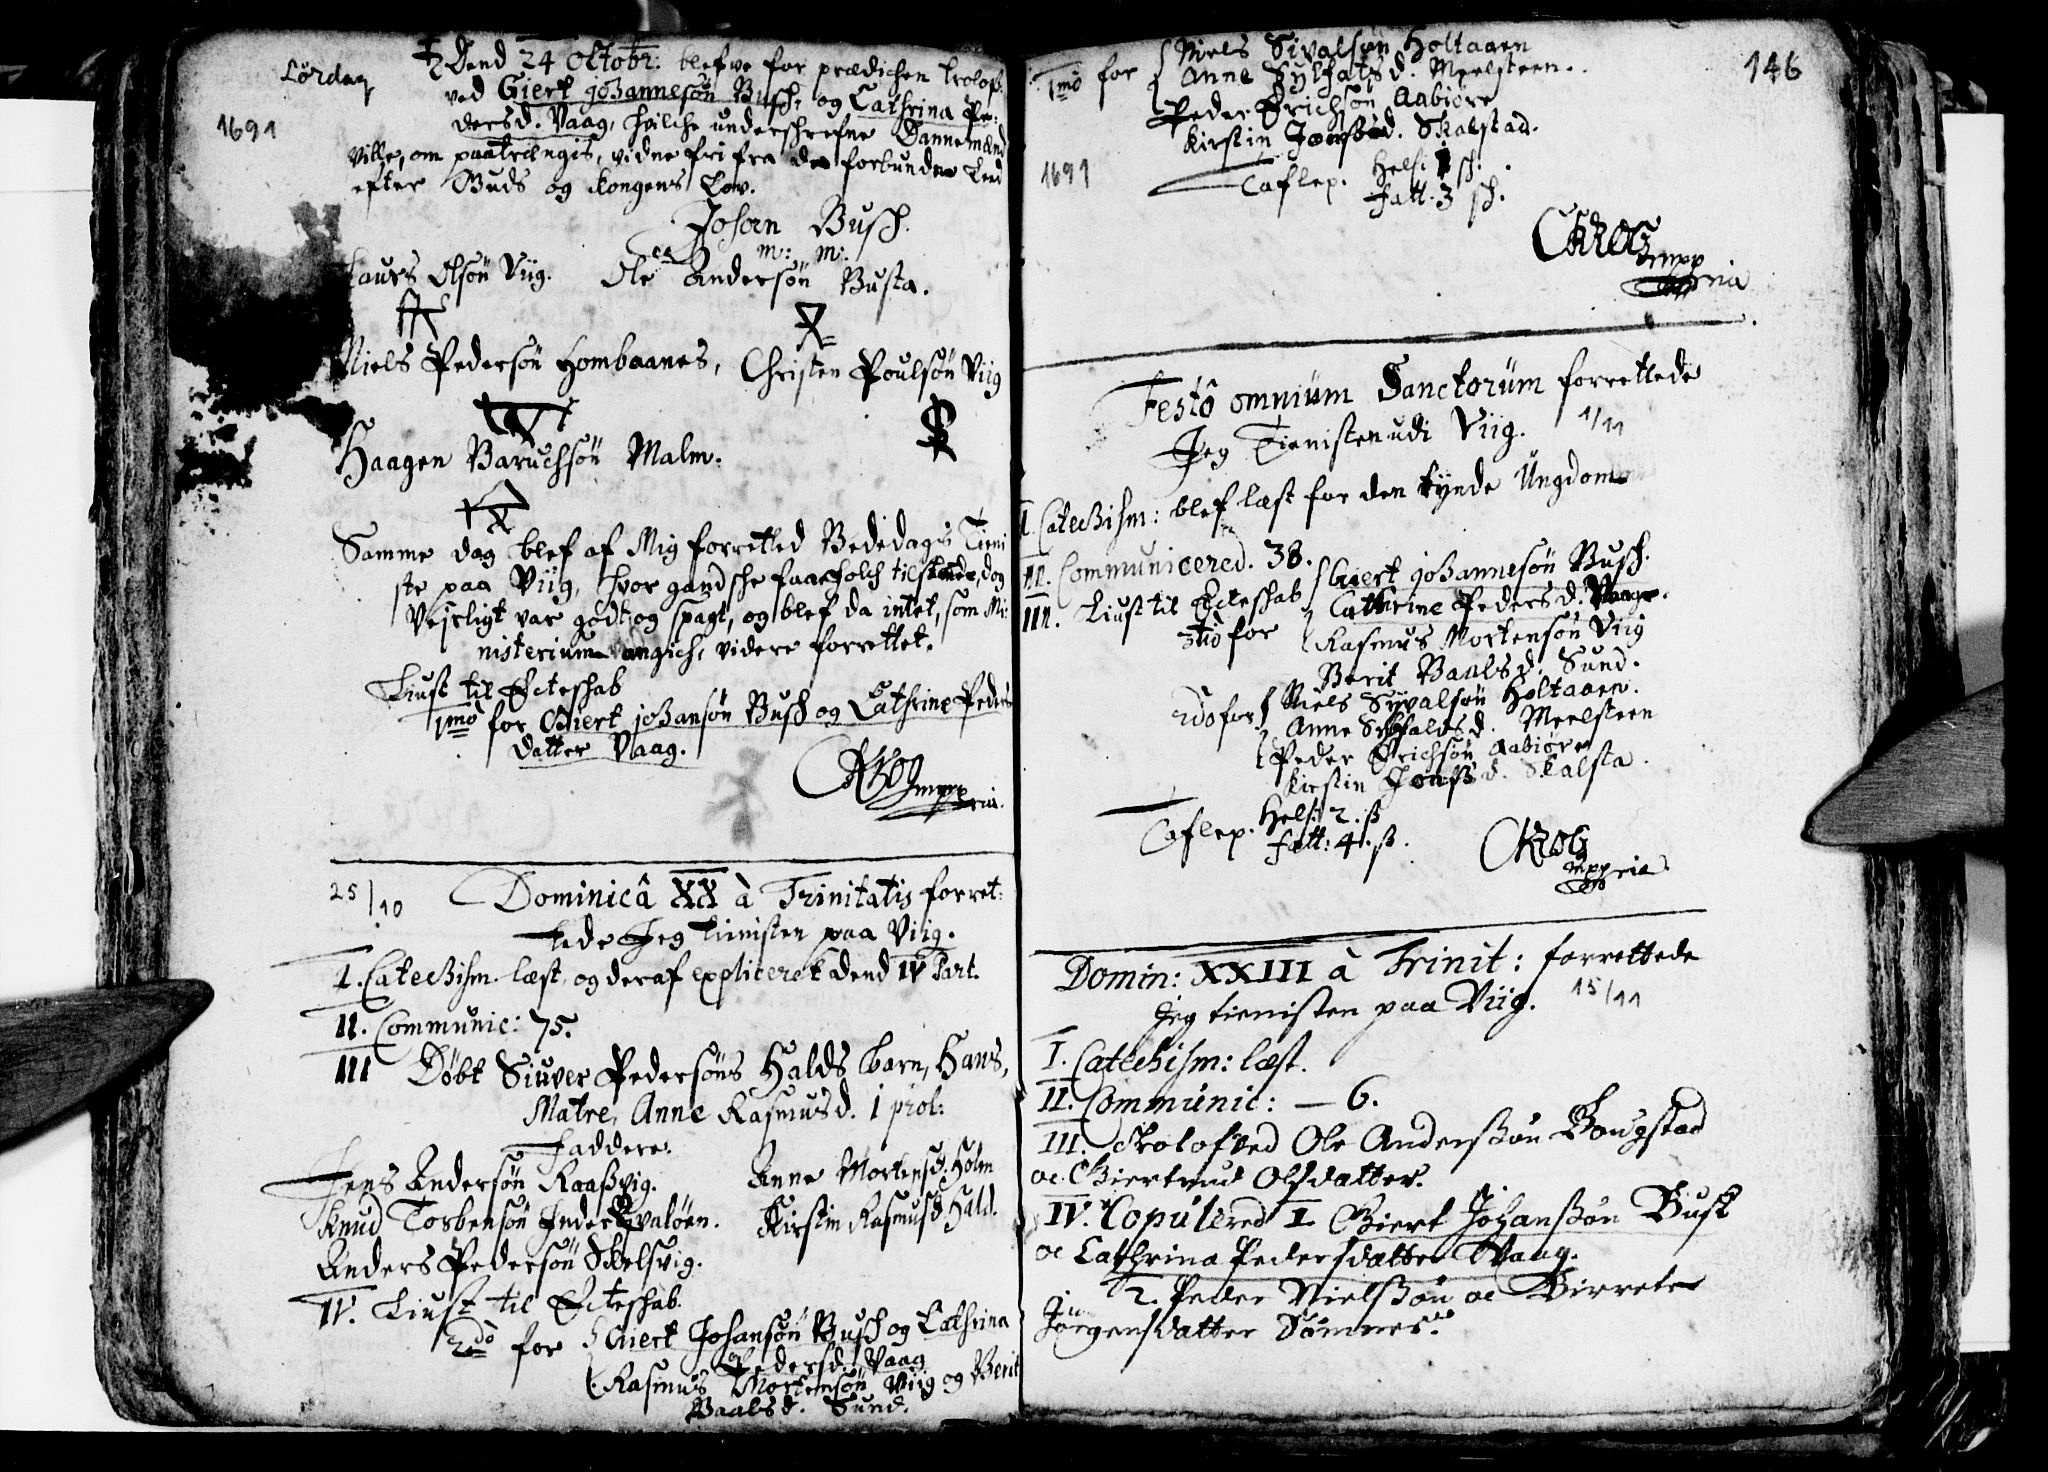 Lørdag
Dend 24 Oktobr: blefve for prædichen trolof:
ved Giert johannesøn Busch, og Cathrina Pe:
1691
dersd. Vaag, hvilche underschrefne Dannemænd
ville, om paatrængis, vidne fri fra de forbunden Leed
efter Guds og Kongens Lov.
Johan Busch.
m: m:
Laurs Olsøn Viig. Ole Andersøn Busta.
Niels Pedersøn Hombaanes, Christen Poulsøn Viig
Haagen Baruchsøn Malm.
Samme dag blef af Mig forretted Bededags Tieni
ste paa Viig, hvor gandsche faae folch tilstæde, dog
Vejrligt var godt og spagt, og blef da intet, som Mi:
nisterium angich, videre forrettet.
Liust til Ecteschab
1mo for Giert johansøn Busch og Cathrine Peders
datter Vaag.
CKrog mppria.
25/10 Dominicâ XX à Trinitatis forret:
tede Jeg tienisten paa Viig.
I. Catechism. læst, og deraf expliceret dend IV Part.
II. Communic: 75.
III Døbt Siuver Pedersøns Halds barn, Hans,
Matre, Anne Rasmusd. 1 prol:
Faddere.
Jens Andersøn Raaßvig. Anne Mortensd. Holm
Knud Torbensøn Inder Qvaløen. Kirstin Rasmusd. Hald.
Anders Pedersøn Skelsvig.
IV. Liust til Ecteschab.
2do for Giert Johansøn Busch og Cathrina
Pedersd. Vaag
Rasmus Mortensøn Viig og Berit
Baalsd. Sund.
146
Niels Sivalsøn Holtaaen
1mo for Anne Sylfatsd. Meelsteen.
Peder Erichsøn Aabiøre
Kirstin Jonsd. Skalstad.
1691
Taflep. Hels: 1 sh.
Fatt. 3 sh.
CKrog mppria
Festô omnium Sanctorum forrettede
Jeg Tienisten udi Viig. 1/11
I. Catechism: blef læst for den tynde Ungdom
II. Communicered. 38.
III. Liust til Ecteschab Giert johannesøn Busch.
3tio for Cathrine Pedersd. Vaage.
Rasmus Mortensøn Viig
Berit Baalsd. Sund.
2do for Niels Syvalsøn Holtaaen.
Anne Sylfaldsd. Meelsteen
Peder Erichsøn Aabiøre
Kirstin Jonsd. Skalsta.
Taflep. Hels: 2. ß
Fatt: 4. ß.
CKrog mppria.
Domin: XXIII à Trinit: forrettede
Jeg tienisten paa Viig. 15/11
I. Catechism: læst.
II. Communic: — 6.
III. Trolofved Ole Anderßøn Bougstad
oc Giertrud Olsdatter.
IV. Copulered 1. Giert Johanßøn Busk
oc Cathrina Pedersdatter Waag.
2. Peder Nielßøn oc Birrete
Jørgensdatter Sømnes.